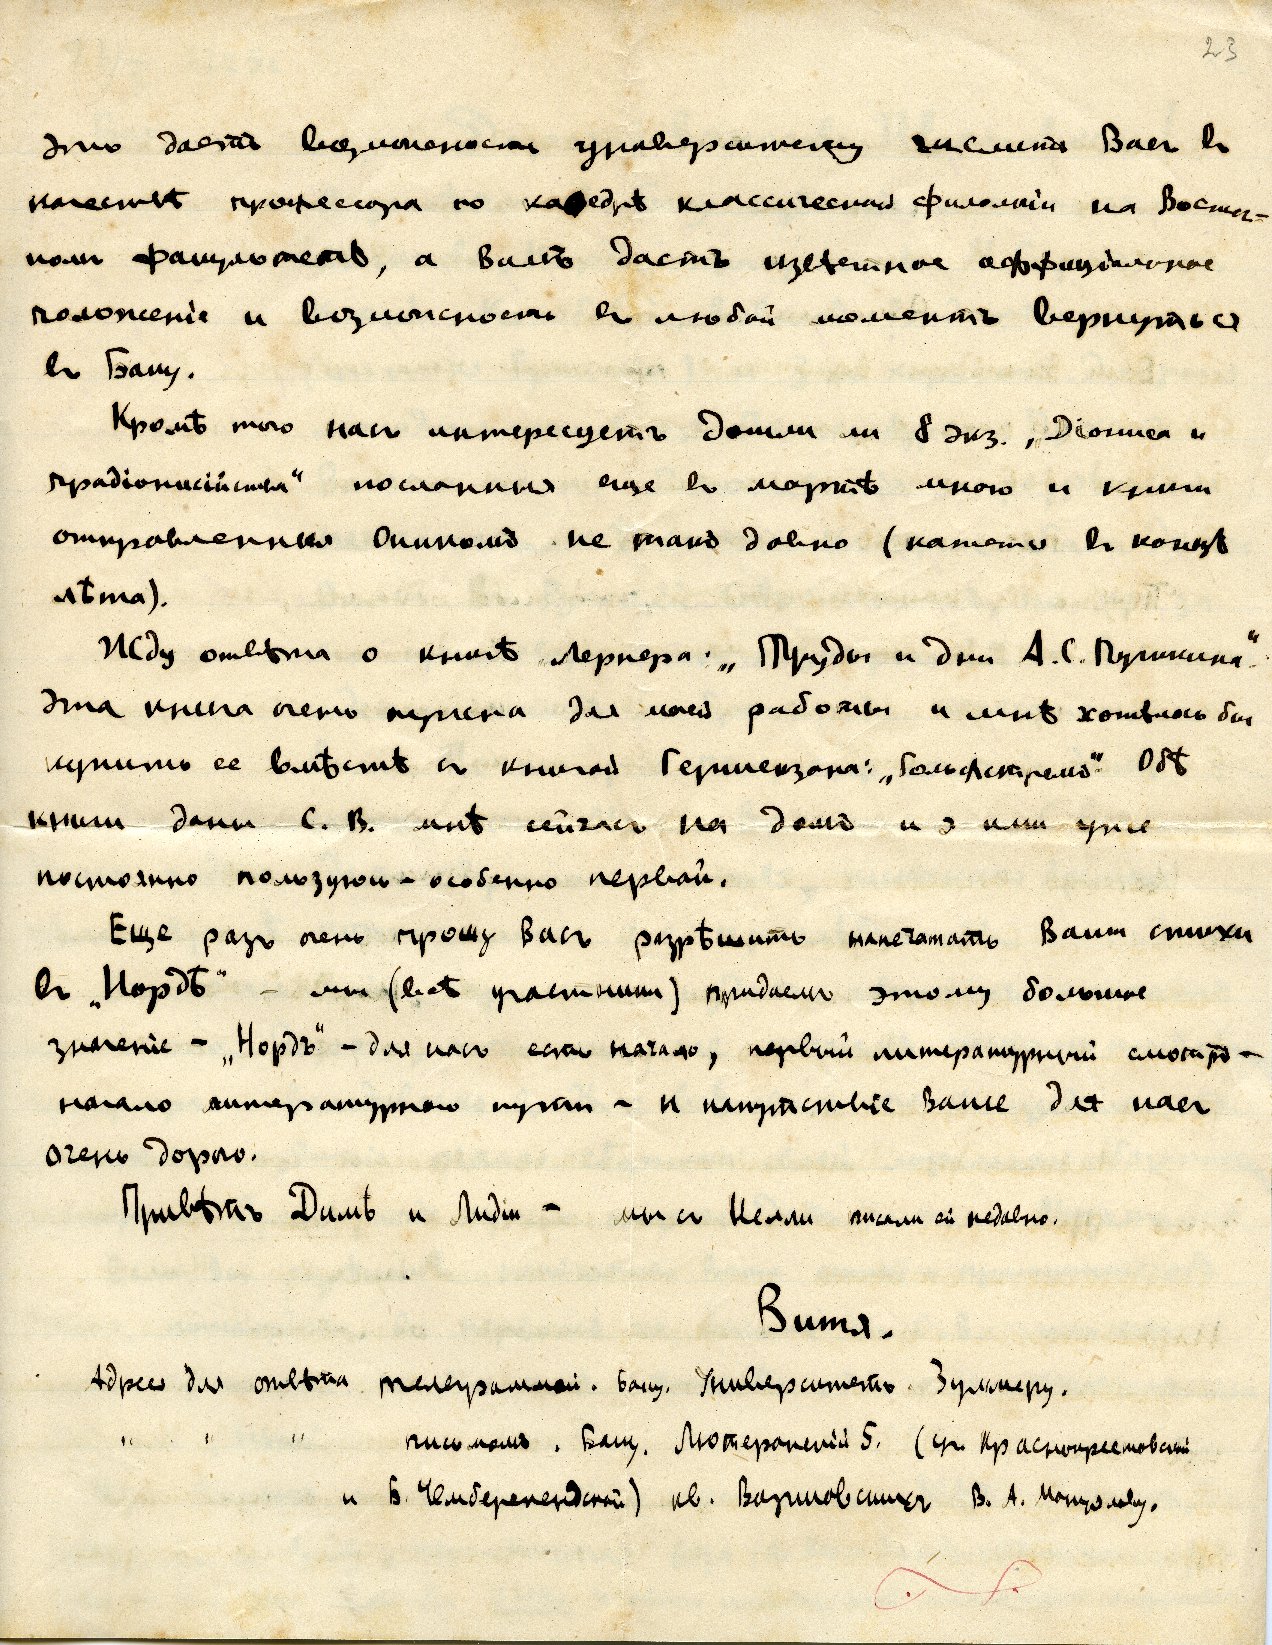 23
это дастъ возможность университету числить Васъ въ
качествѣ профессора по кафедрѣ классической филологіи на Восточ-
номъ факультетѣ, а Вамъ дастъ извѣстное оффиціальное
положеніе и возможность въ любой моментъ вернуться
въ Баку.
Кромѣ того насъ интересуетъ дошли ли 8 экз. „Діониса и
прадіонисійства“ посланныя еще въ мартѣ мною и книги
отправленныя Оникомъ не такъ давно (кажется въ концѣ
лѣта).
Жду отвѣта о книгѣ Лернера: „Труды и дни А.С. Пушкина“.
Эта книга очень нужна для моей работы и мнѣ хотѣлось бы
купить ее вмѣстѣ съ книгой Гершензона: „Гольфстремъ“. Обѣ
книги даны С. В. мнѣ сейчасъ на домъ и я ими уже
постоянно пользуюсь – особенно первой.
Еще разъ очень прошу Васъ разрѣшить напечатать Ваши стихи
въ „Нордѣ“ – мы (всѣ участники) придаемъ этому большое
значеніе – „Нордъ“ – для насъ есть начало, первый литературный смотръ –
начало литературного пути – и напутствіе Ваше для насъ
очень дорого.
Привѣтъ Димѣ и Лидіи – мы съ Нелли писали ей недавно.
Витя.
Адресъ для отвѣта телеграммой. Баку. Университетъ. Зуммеру.
" " " письмомъ. Баку. Лютеранскій 5. (уг. Краснокрестовской
и Б. Чемберекендской) кв. Вазимовскихъ В. А. Мануйлову.